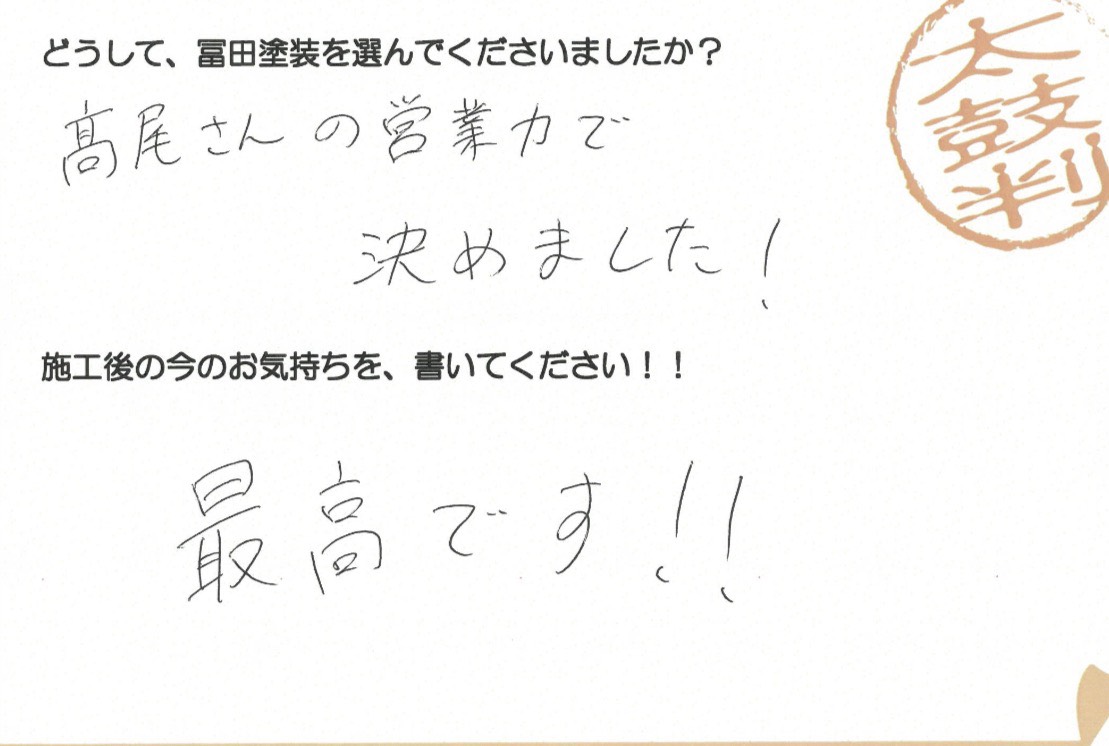 どうして、冨田塗装を選んでくださいましたか？
髙尾さんの営業力で
決めました！
施工後の今のお気持ちを、書いてください！！
最高です！！
太
鼓
判